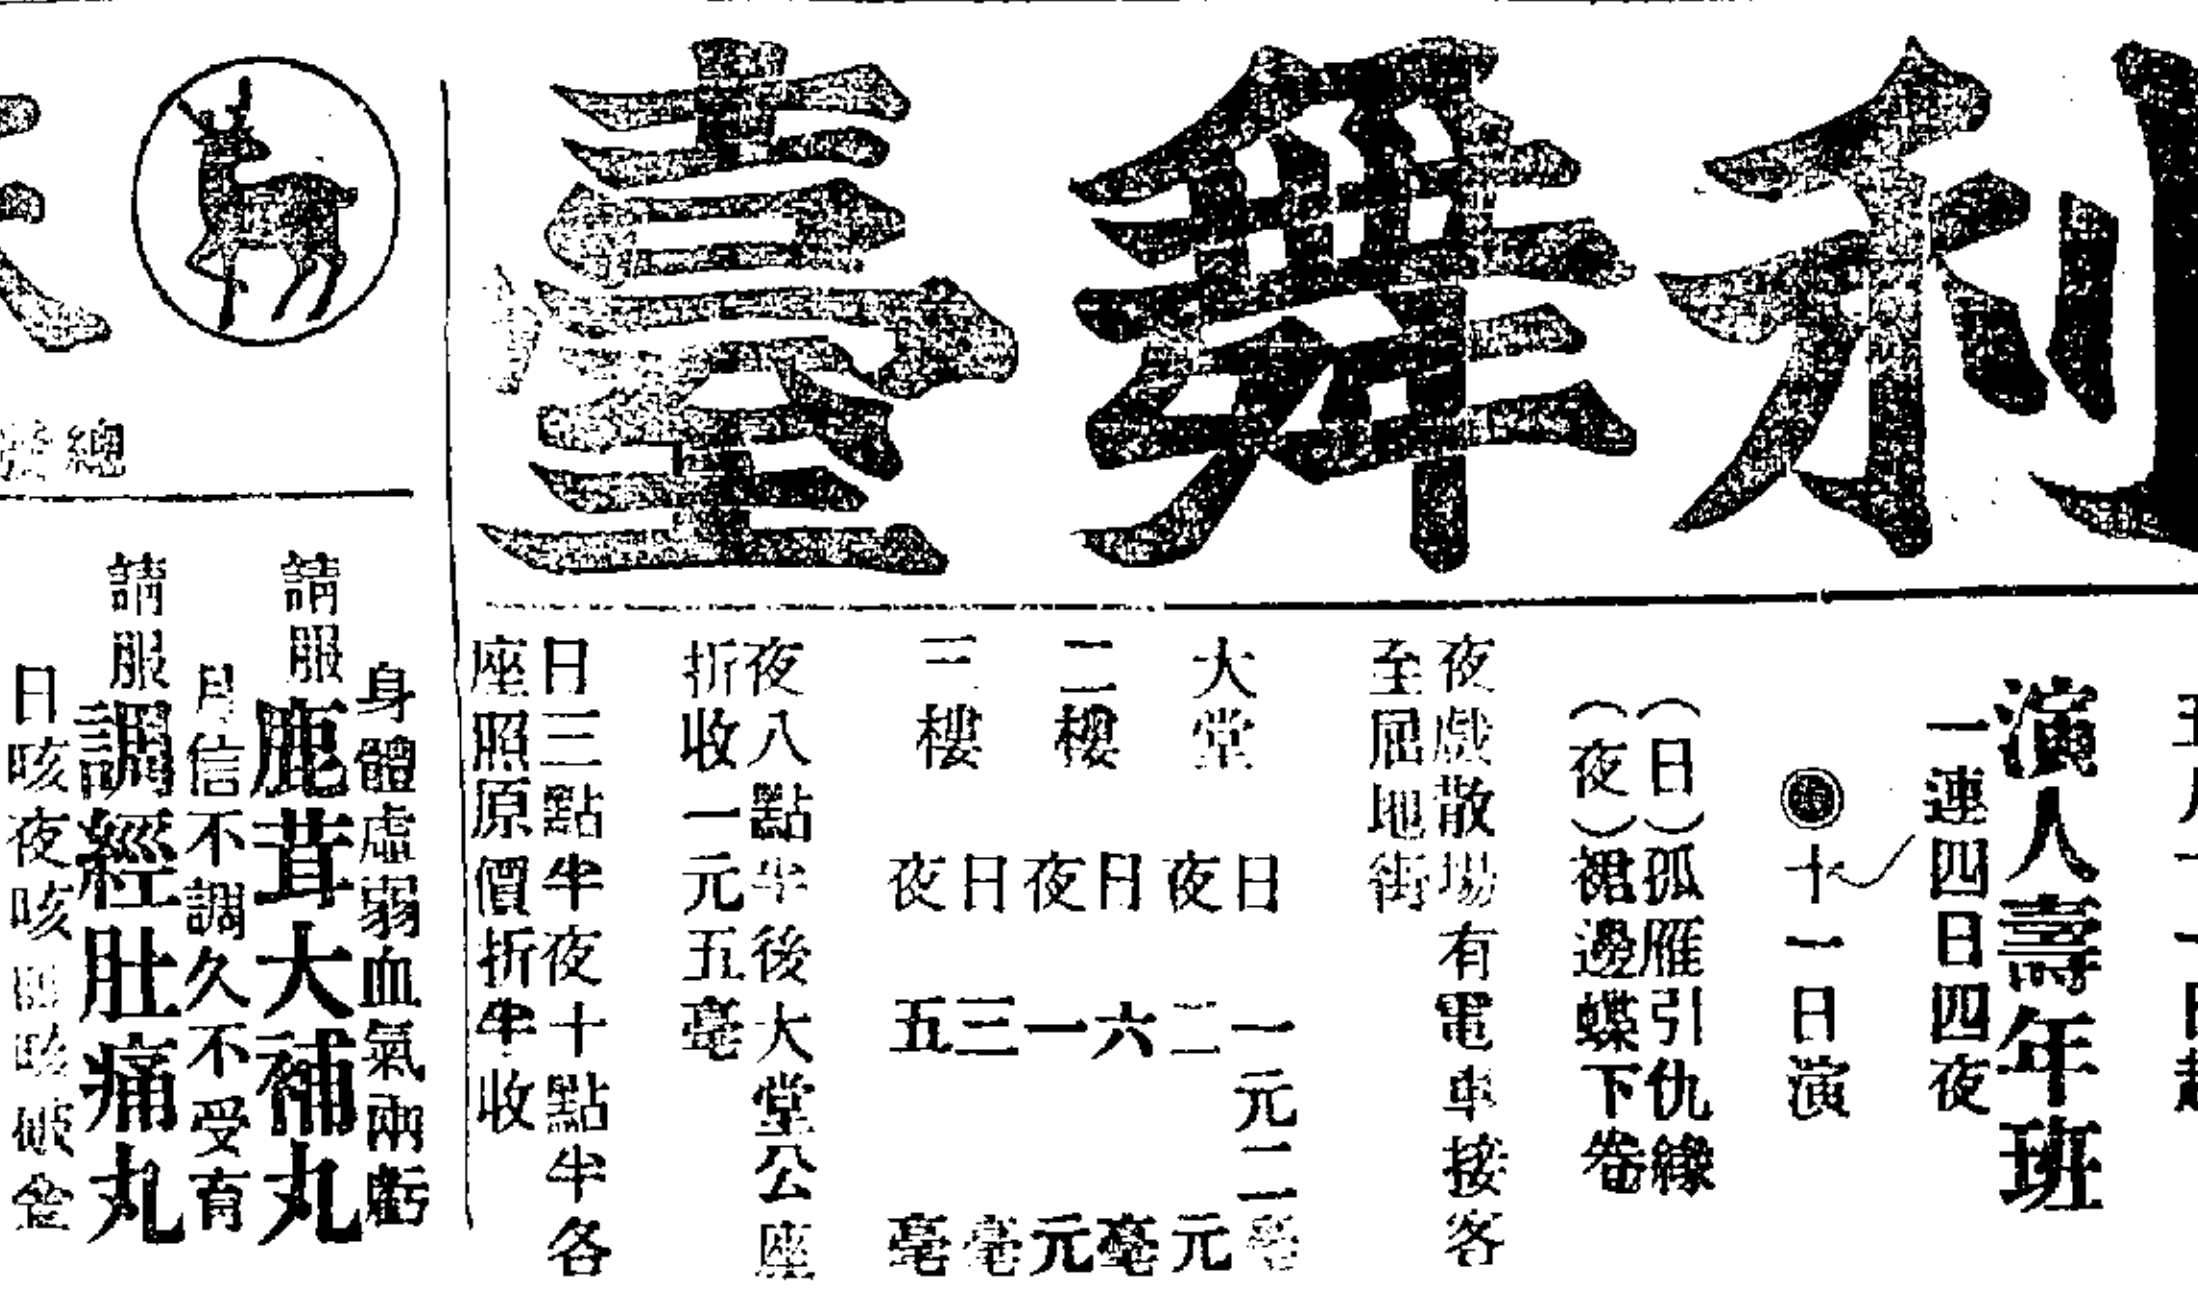 利舞臺
演人壽年班
一連四日四夜
十一日演
(日)孤雁引仇緣
(夜)裙邊蝶下卷
夜戲散場有電車接客
至屈地街
大堂
日一元二毫
夜二元
二樓
日六毫
夜一元
三樓
日三毫
夜五毫
夜八點半後大堂公座
折收一元五毫
日三點半夜十點半各
座照原價折半收
總
身體虛弱血氣兩虧
請服鹿茸大補丸
月信不調久不受育
請服調經肚痛丸
日咳夜咳